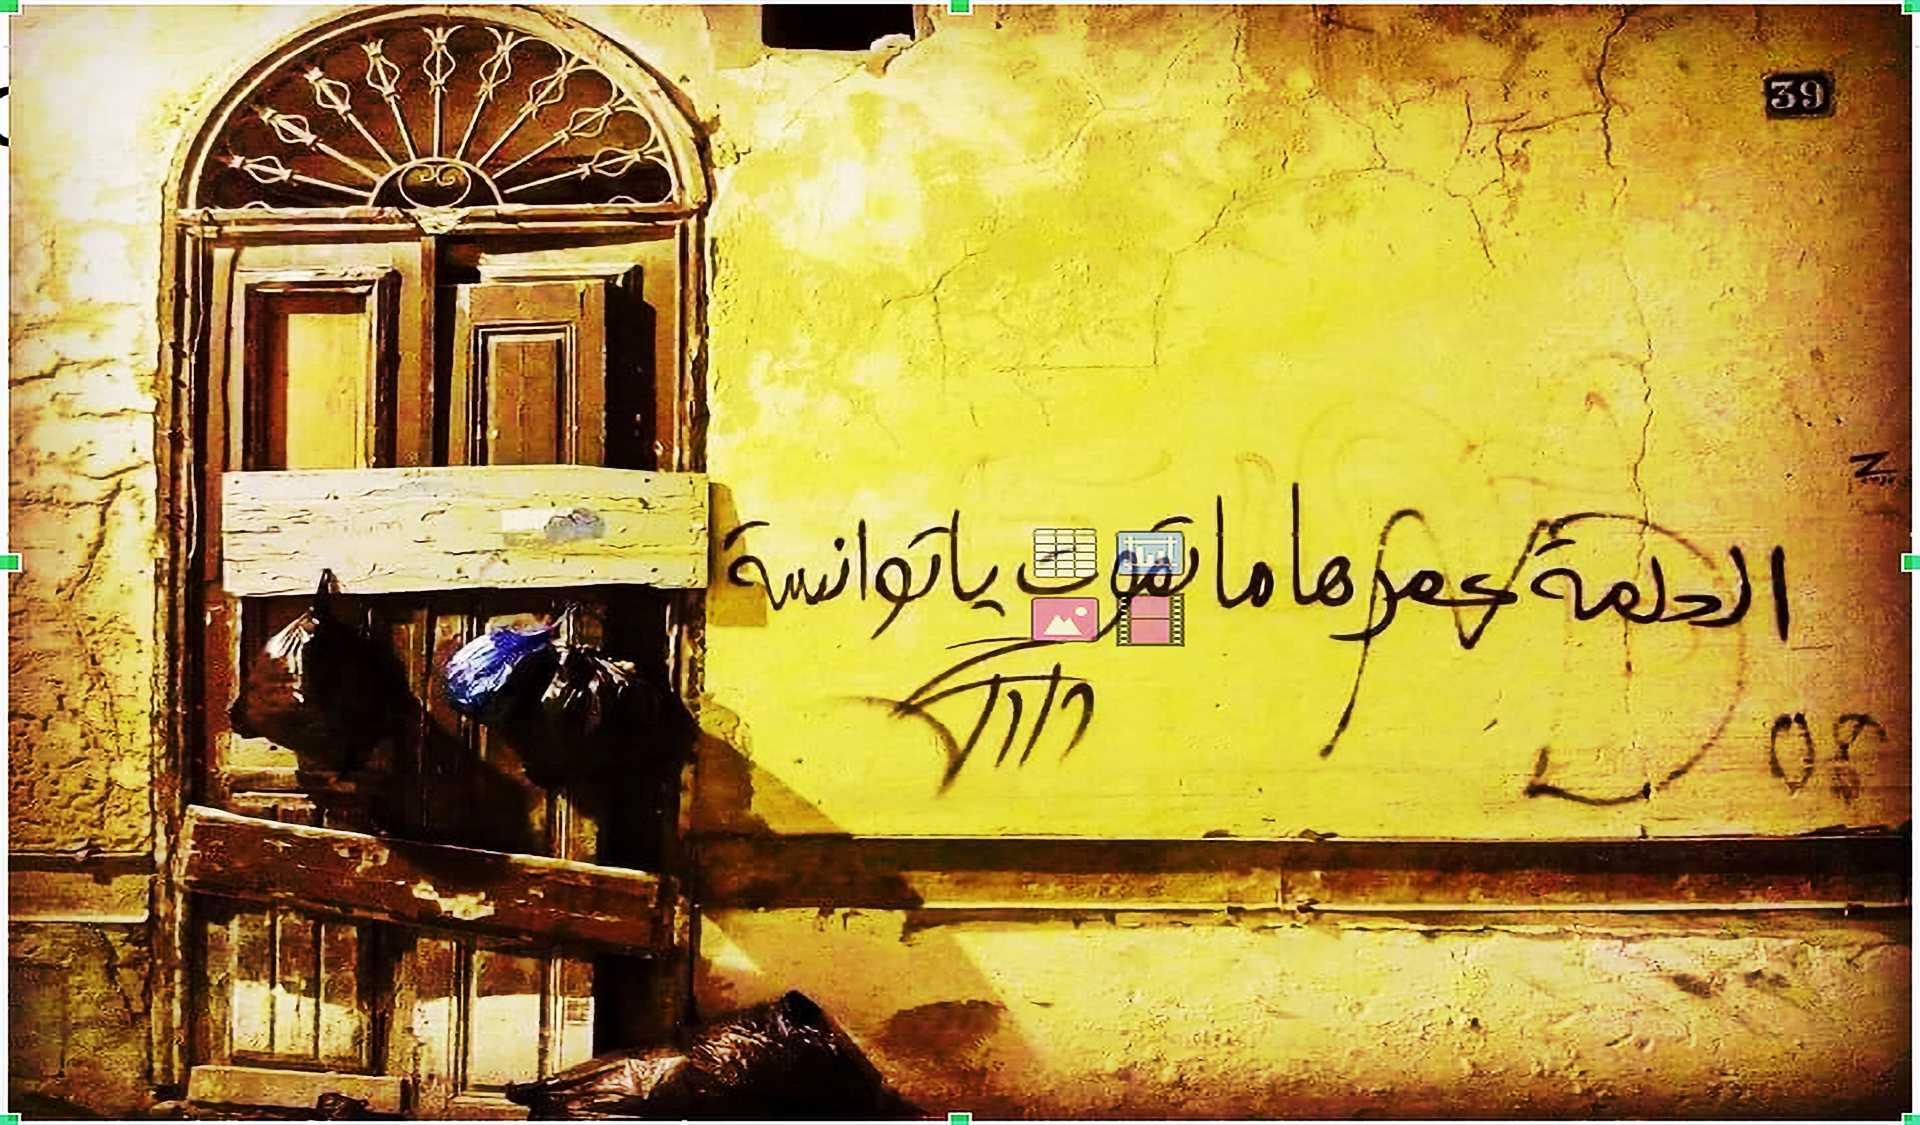 39
الحلمة عمرها ما تموت يا توانسة
08